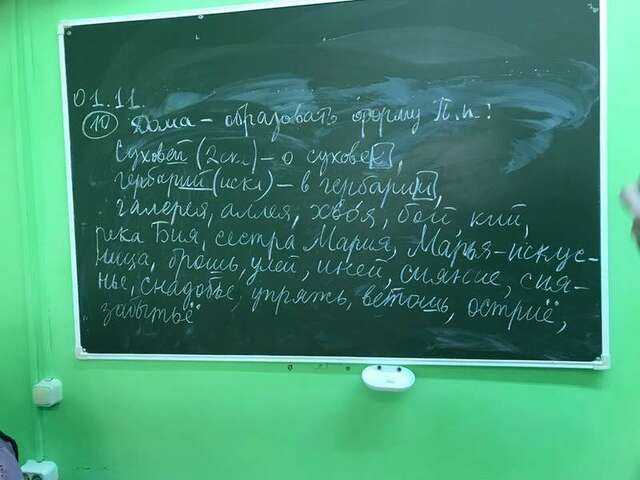 01.11.
10 Дома - образовать форму П.п.:
Суховей (2скл.) - о суховее,
гербарий (искл) - в гербарии,
галерея, аллея, хвоя, бой, кий,
река Бия, сестра Мария, Марья-искус-
ница, брошь, улей, иней, сияние, сия-
нье, снадобье, упряжь, ветошь, остриё,
забытьё